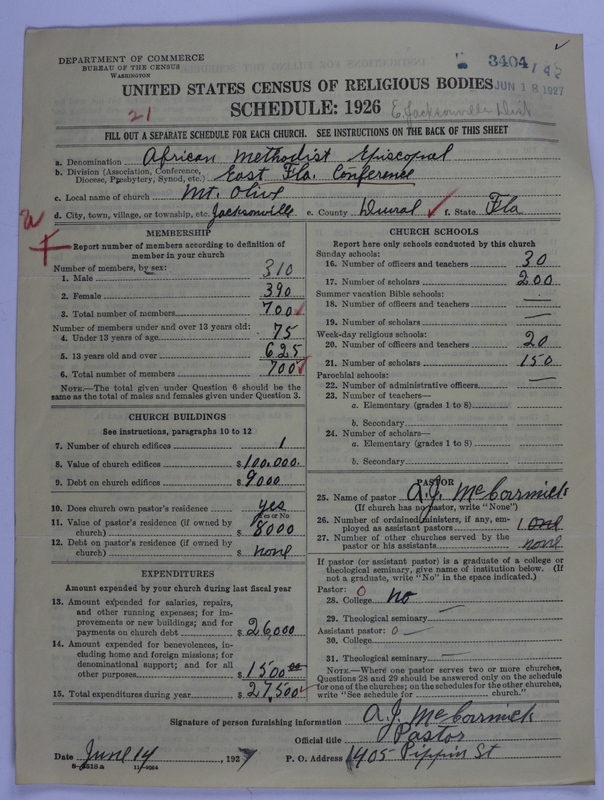 DEPARTMENT OF COMMERCE
BUREAU OF THE CENSUS
WASHINGTON
3404 142
JUN 18 1927
UNITED STATES CENSUS OF RELIGIOUS BODIES
21
SCHEDULE: 1926
E. Jacksonville Dist
FILL OUT A SEPARATE SCHEDULE FOR EACH CHURCH. SEE INSTRUCTIONS ON THE BACK OF THIS SHEET
a. Denomination African Methodist Episcopal
b. Division (Association, Conference, Diocese, Presbytery, Synod, etc.) East Fla. Conference
c. Local name of church Mt. Olive
d. City, town, village, or township, etc. Jacksonville e. County Duval f. State Fla
MEMBERSHIP
Report number of members according to definition of
member in your church
Number of members, by sex:
1. Male 310
2. Female 390
3. Total number of members 700
Number of members under and over 13 years old:
4. Under 13 years of age 75
5. 13 years old and over 625
6. Total number of members 700
NOTE.—The total given under Question 6 should be
same as the total of males and females given under Question 3.
CHURCH BUILDINGS
See instructions, paragraphs 10 to 12
7. Number of church edifices 1
8. Value of church edifices $100.000.
9. Debt on church edifices $9000
10. Does church own pastor's residence yes
Yes or No
11. Value of pastor's residence (if owned by
church) $8000
12. Debt on pastor's residence (if owned by
church) $none
EXPENDITURES
Amount expended by your church during last fiscal year
13. Amount expended for salaries, repairs,
and other running expenses; for im-
provements or new buildings; and for
payments on church debt $26,000
14. Amount expended for benevolences, in-
cluding home and foreign missions; for
denominational support; and for all
other purposes $1500 00
15. Total expenditures during year $27,500
CHURCH SCHOOLS
Report here only schools conducted by this church
Sunday schools:
16. Number of officers and teachers 30
17. Number of scholars 200
Summer vacation Bible schools:
18. Number of officers and teachers —
19. Number of scholars —
Week-day religious schools:
20. Number of officers and teachers 20
21. Number of scholars 150
Parochial schools:
22. Number of administrative officers —
23. Number of teachers—
a. Elementary (grades 1 to 8)
b. Secondary
24. Number of scholars—
a. Elementary (grades 1 to 8)
b. Secondary
PASTOR
25. Name of pastor A.J. McCormick
(If church has no pastor, write "None")
26. Number of ordained ministers, if any, em-
ployed as assistant pastors 1 one
27. Number of other churches served by the
pastor or his assistants none
If pastor (or assistant pastor) is a graduate of a college or
theological seminary, give name of institution below. (If
not a graduate, write "No" in the space indicated.)
Pastor: 0
28. College No
29. Theological seminary —
Assistant pastor: 0 —
30. College
31. Theological seminary —
NOTE.—Where one pastor serves two or more churches,
Questions 28 and 29 should be answered only on the schedule
for one of the churches; on the schedules for the other churches,
write "See schedule for church."
Signature of person furnishing information A.J. McCormick
Official title Pastor
Date June 14, 1927 P. O. Address 1405 Pippin St
8-5318a 11-9264